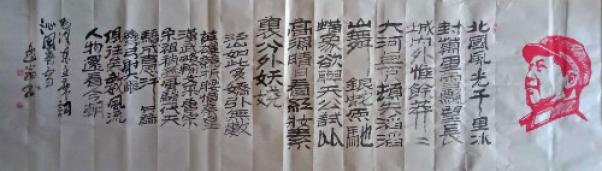 北國風光千里冰
封萬里雪飄望長
城內外惟餘莽=
大河上下頓失滔滔
山舞銀蛇原馳
蠟象欲與天公試比
高須晴日看紅妝素
裹分外妖嬈
江山如此多嬌引無數
英雄競折腰惜秦皇
漢武略輸文采唐宗
宋祖稍遜風騷一代天
驕成吉思汗只識
彎弓射大雕
俱往矣數風流
人物還看今朝
毛澤東主席詞
沁園春雪